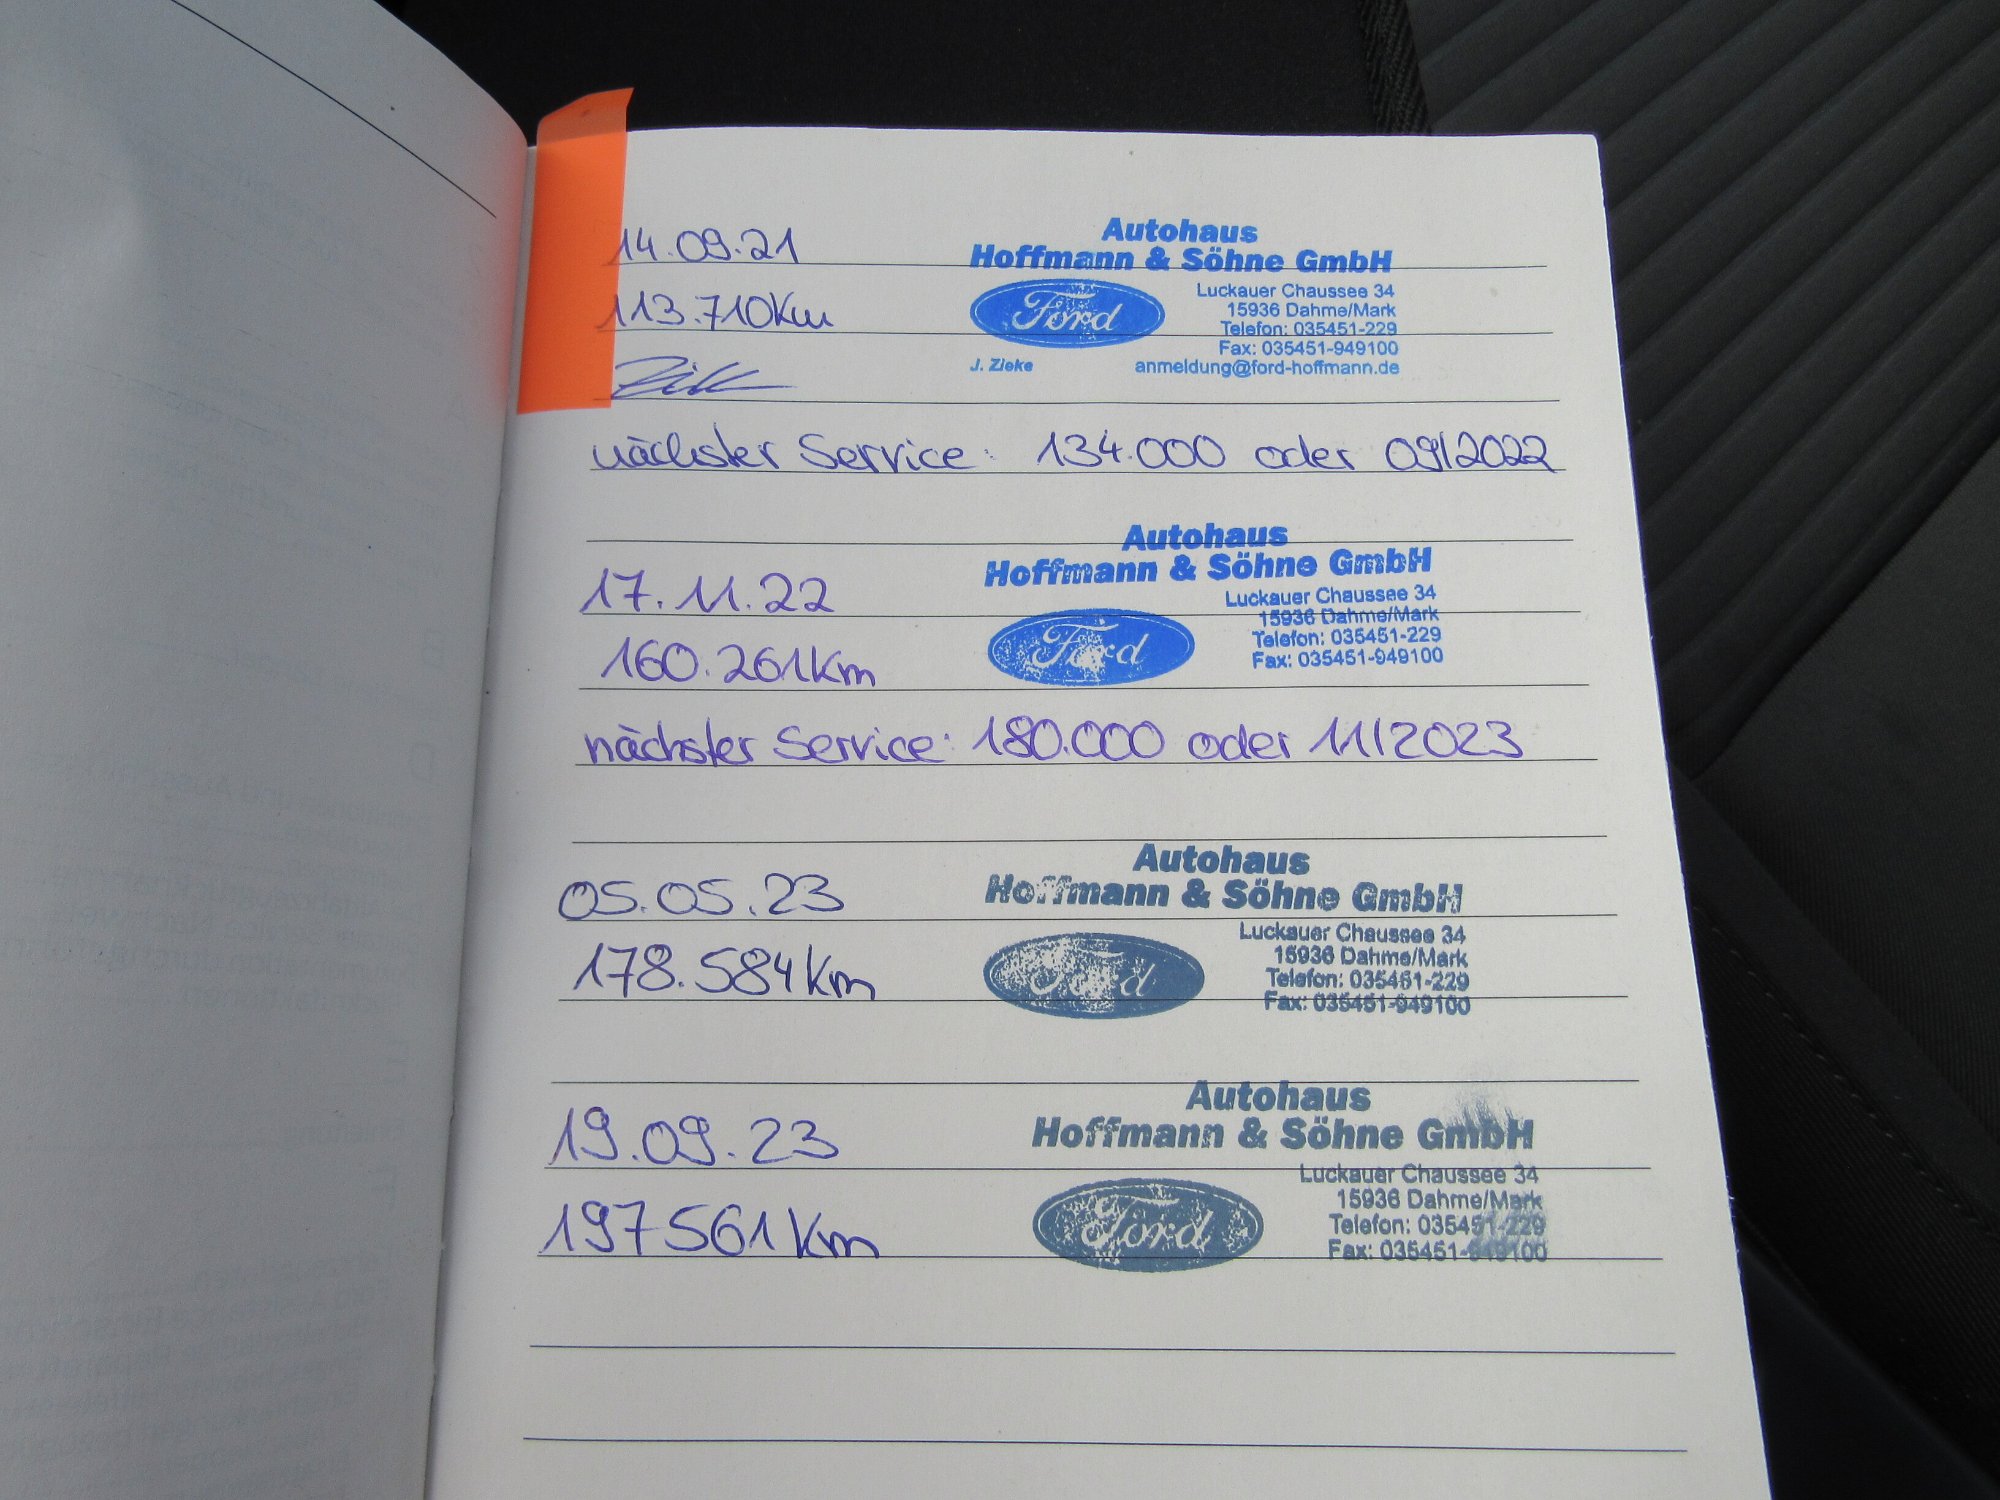 14.09.21
Autohaus
Hoffmann & Söhne GmbH
113.710Km
Ford
Luckauer Chaussee 34
15936 Dahme/Mark
Telefon: 035451-229
Fax: 035451-949100
J. Zieke
anmeldung@ford-hoffmann.de
nächster Service: 134.000 oder 09/2022
17.11.22
Autohaus
Hoffmann & Söhne GmbH
160.261Km
Ford
Luckauer Chaussee 34
15936 Dahme/Mark
Telefon: 035451-229
Fax: 035451-949100
nächster Service: 180.000 oder 11/2023
05.05.23
Autohaus
Hoffmann & Söhne GmbH
178.584km
Ford
Luckauer Chaussee 34
15936 Dahme/Mark
Telefon: 035451-229
Fax: 035451-949100
19.09.23
Autohaus
Hoffmann & Söhne GmbH
197561km
Ford
Luckauer Chaussee 34
15936 Dahme/Mark
Telefon: 035451-229
Fax: 035451-949100